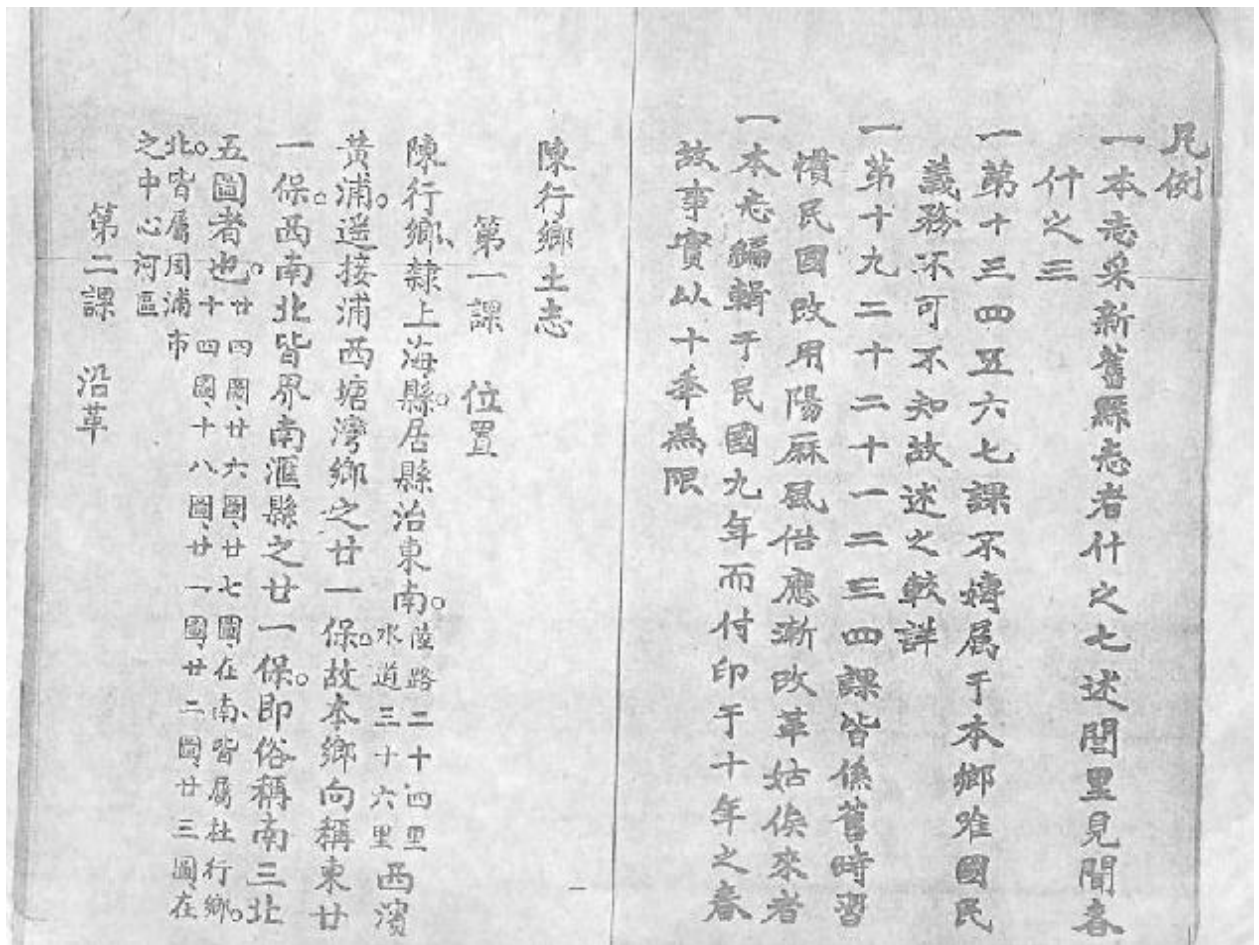 凡例
一本志采新舊縣志者什之七述閭里見聞者
什之三
一第十三四五六七課不嫥属于本鄉唯國民
義務不可不知故述之較詳
一第十九二十二十一二三四課皆係舊時習
慣民國改用陽厤風俗應漸改革姑俟來者
一本志編輯于民國九年而付印于十年之春
故事實以十年為限
陳行鄉土志
第一課 位置
陳行鄉、隷上海縣。居縣治東南。陸路二十四里水道三十六里西濱
黃浦。遥接浦西塘灣鄉之廿一保。故本鄉向稱東廿
一保。西南北皆界南滙縣之廿一保。即俗稱南三北
五圖者也。廿四圖、廿六圖、廿七圖、在南、皆属杜行鄉。十四圖、十八圖、廿一圖、廿二圖、廿三圖、在
北。皆属周浦市之中心河區
第二課 沿革
一